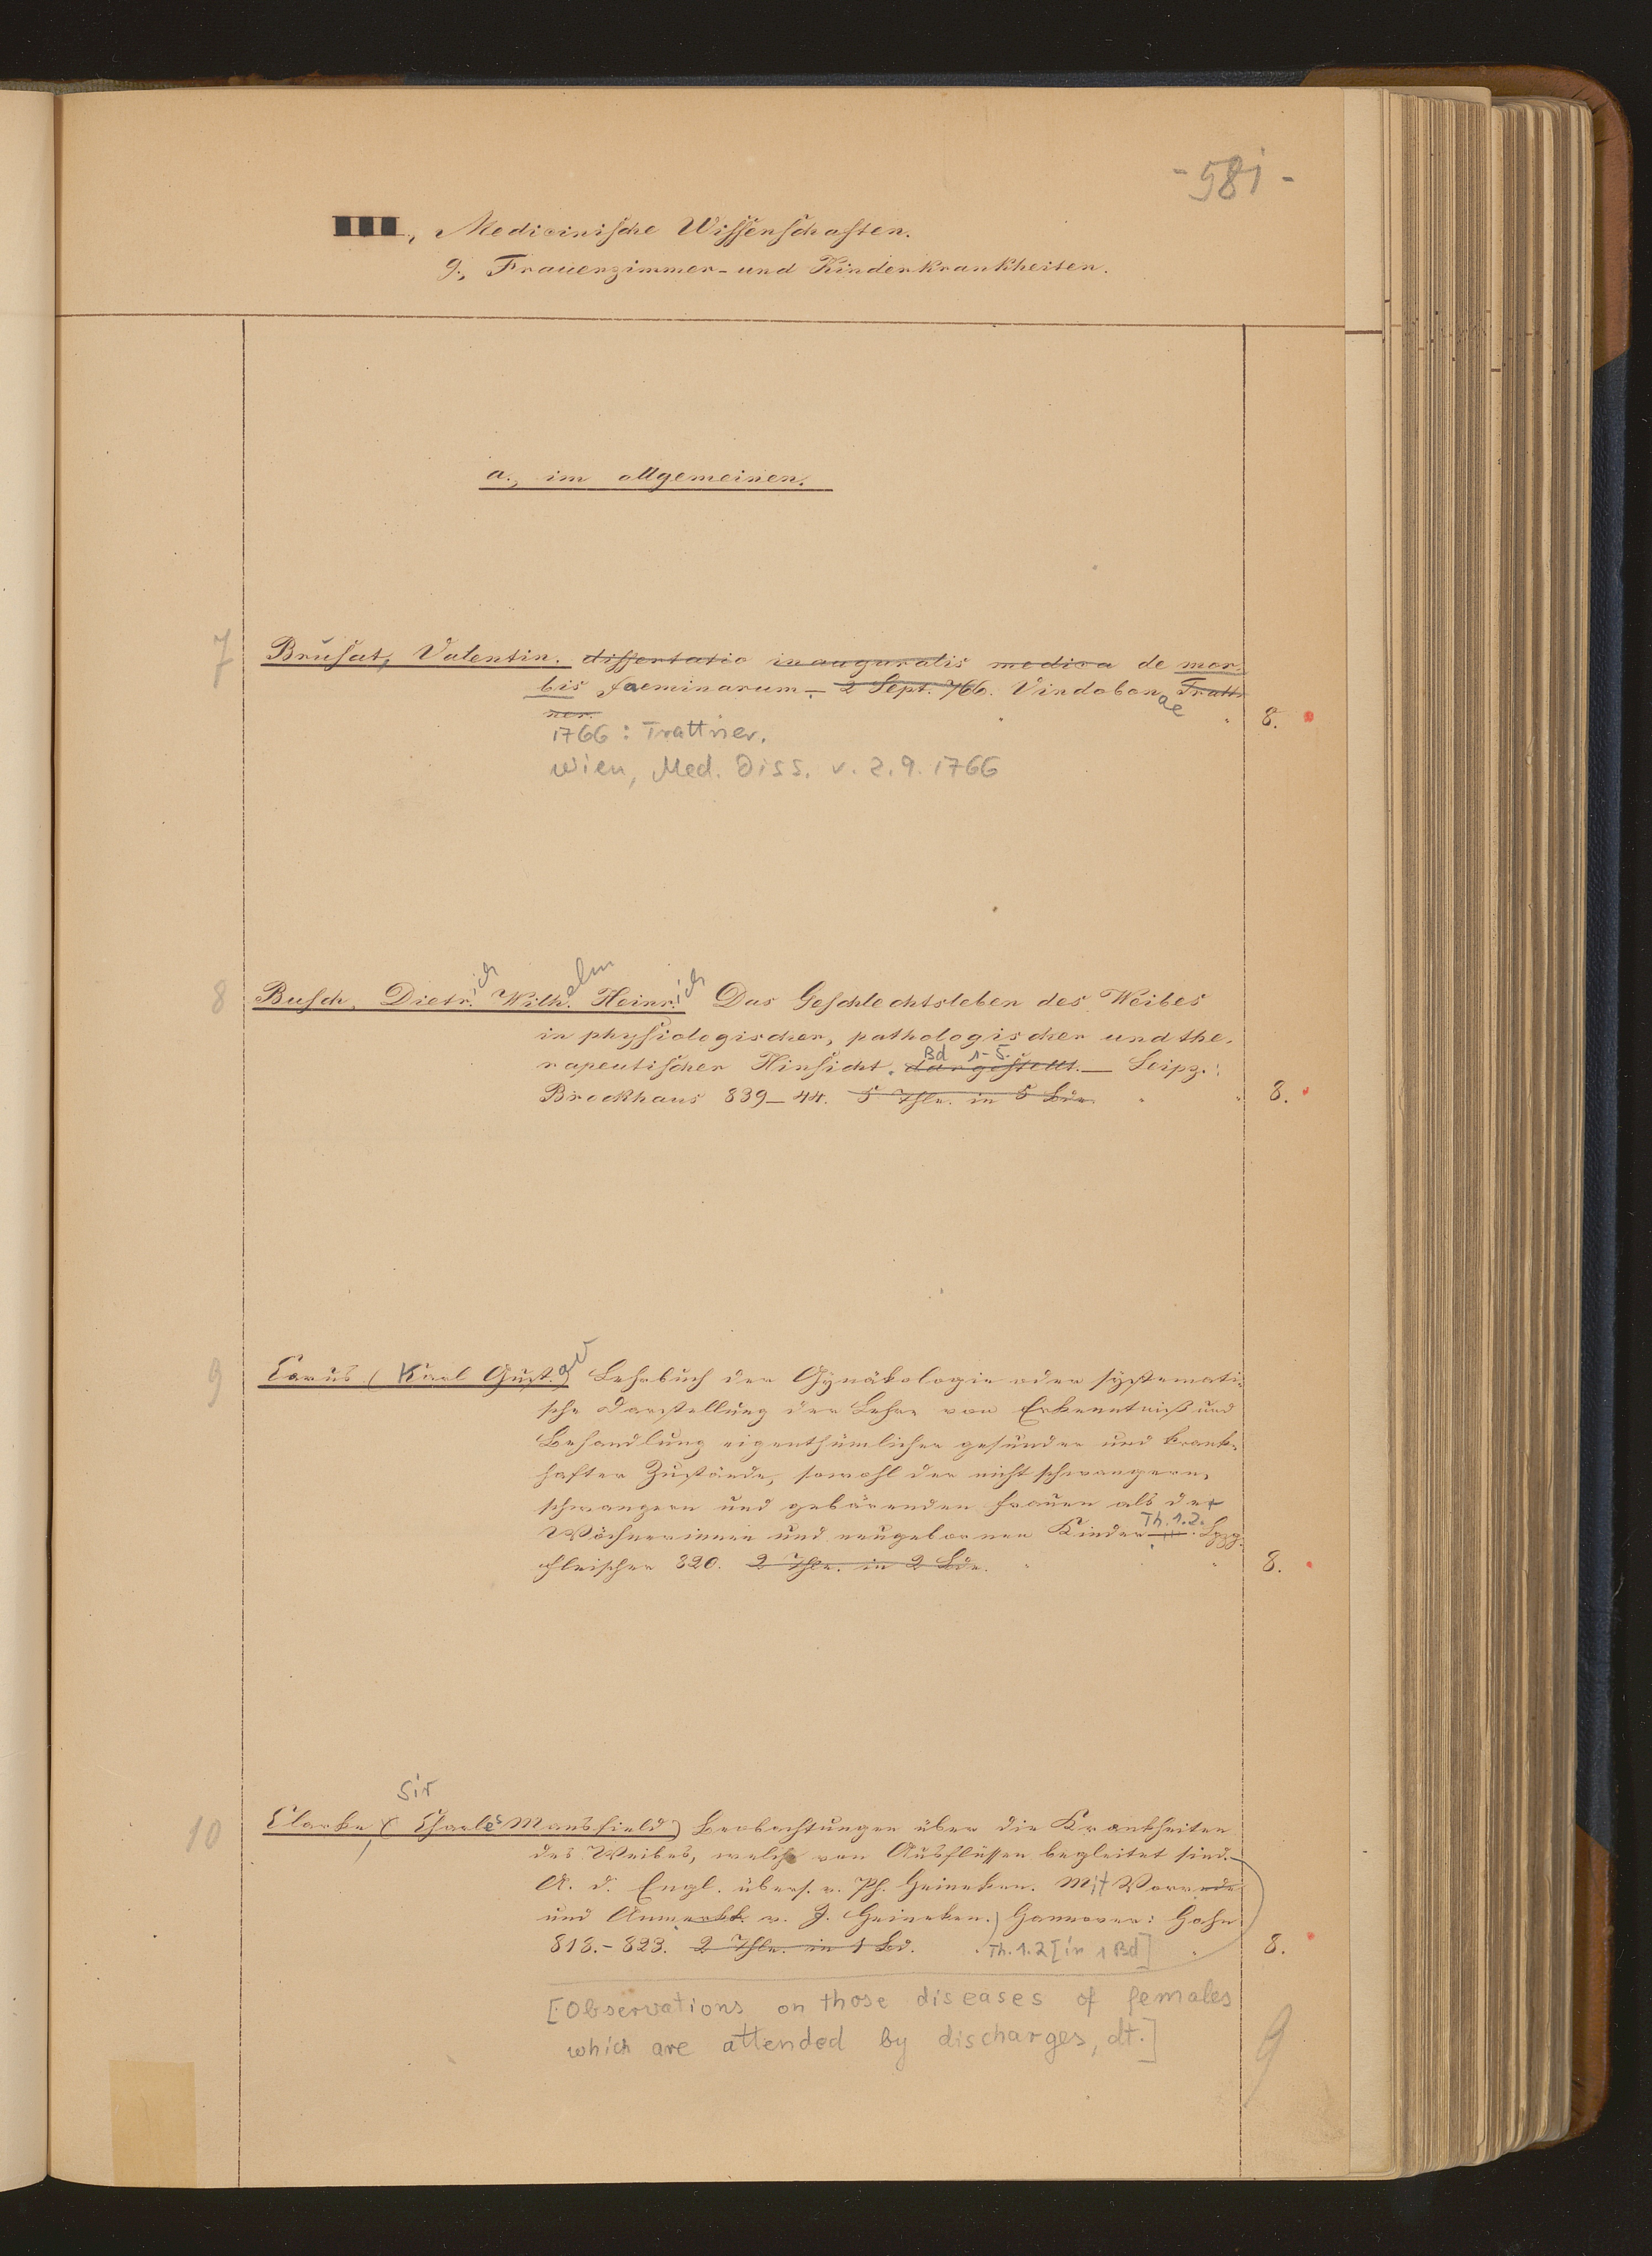 - 581 -
III., Medicinische Wissenschaften.
g., Frauenzimmer- und Kinderkrankheiten.
a., im allgemeinen.
7
Brusat, Valentin. dissertatio inauguralis medica de mor-
bis faeminarum – 2 Sept. 766. Vindobonae Tratt-
ner. 8.
1766: Trattner.
Wien, Med. Diss. v. 2.9.1766
8
Busch, Dietr.ich Wilh.elm Heinr.ich Das Geschlechtsleben des Weibes
in physiologischer, pathologischer und the-
rapeutischer Hinsicht. dargestellt. Bd 1-5. — Leipz.:
Brockhaus 839–44. 5 Thle. in 5 Bde. 8.
9
Carus (Karl Gust.av) Lehrbuch der Gynäkologie oder systemati-
sche Darstellung der Lehre von Erkenntniß und
Behandlung eigenthümlicher gesunder und krank-
hafter Zustände, sowohl der nicht schwangern,
schwangern und gebärenden Frauen als der
Wöchnerinnen und neugebornen Kinder Th. 1.2. Lpzg.
Fleischer 820. 2 Thle. in 2 Bde. 8.
Sir
10
Clarke, (Charles Mansfield) Beobachtungen über die Krankheiten
des Weibes, welche von Ausflüssen begleitet sind.
A. d. Engl. übers. v. Ph. Heineken. Mit Vorrede
und Anmerkk. v. J. Heineken.) Hannover: Hahn
818.-823. 2 Thle. in 1 Bd. Th. 1.2 [in 1 Bd] 8.
[Observations on those diseases of females
which are attended by discharges, dt.]
9